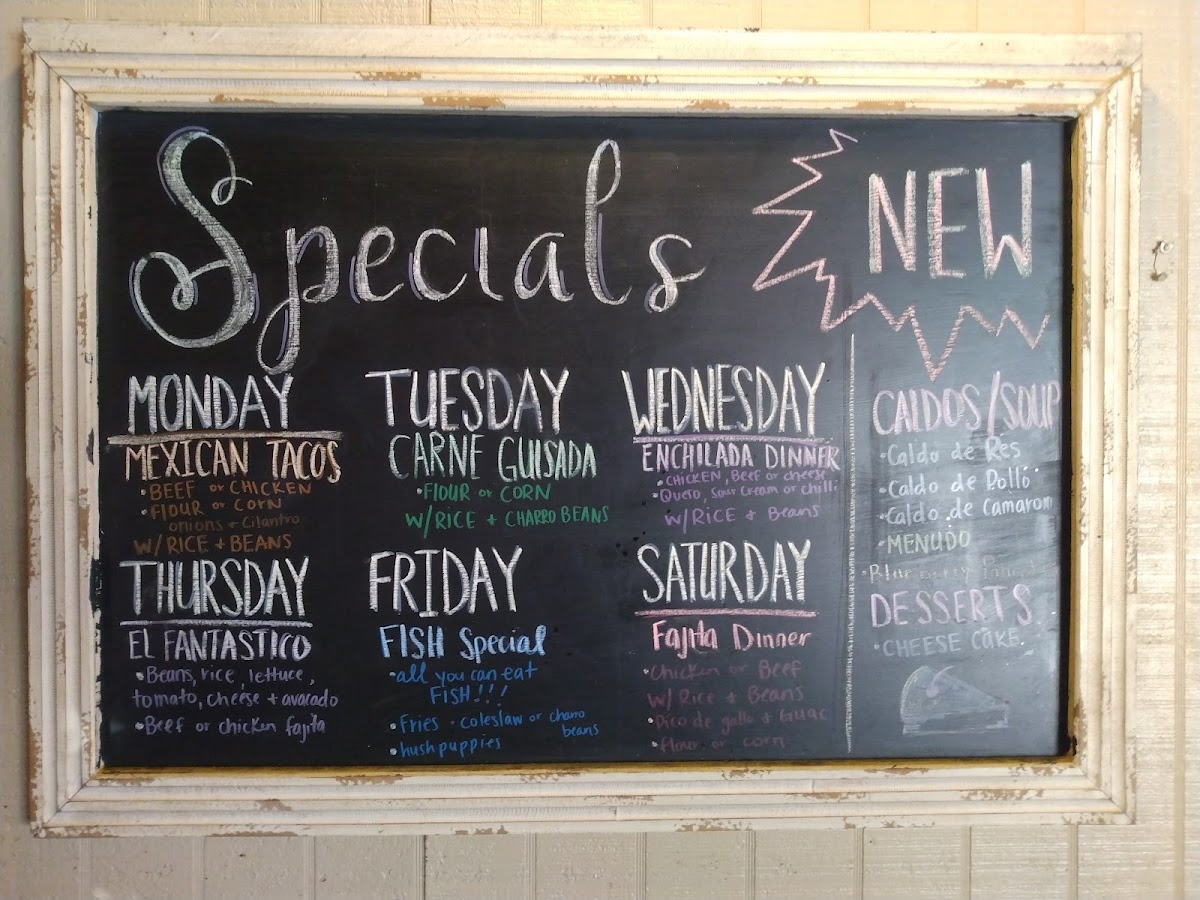 Specials
NEW
MONDAY
MEXICAN TACOS
• BEEF or CHICKEN
• FLOUR or CORN
onions + Cilantro
W/RICE + BEANS
TUESDAY
CARNE GUISADA
• FLOUR or CORN
W/RICE + CHARRO BEANS
WEDNESDAY
ENCHILADA DINNER
• CHICKEN, Beef or cheese
• Queso, Sour Cream or chilli
W/RICE + Beans
THURSDAY
EL FANTASTICO
• Beans, rice, lettuce,
tomato, cheese + avocado
• Beef or chicken fajita
FRIDAY
FISH Special
• all you can eat
FISH!!!
• Fries • coleslaw or charro
beans
• hushpuppies
SATURDAY
Fajita Dinner
• Chicken or Beef
W/ Rice + Beans
• Pico de gallo + Guac
• flour or corn
CALDOS/SOUP
• Caldo de Res
• Caldo de Polló
• Caldo de Camaron
• MENUDO
• Blueberry
DESSERTS
• CHEESE CAKE.